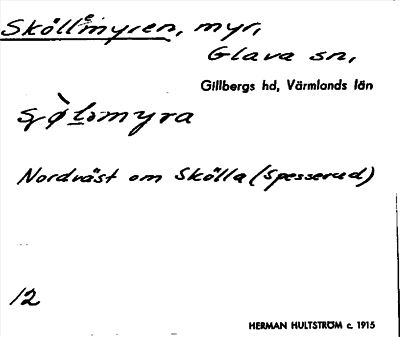 Sköllåmyren, myr,
Glava sn,
Gillbergs hd, Värmlands län
Nordväst om Skölla (Spesserud)
12
HERMAN HULTSTRÖM c. 1915